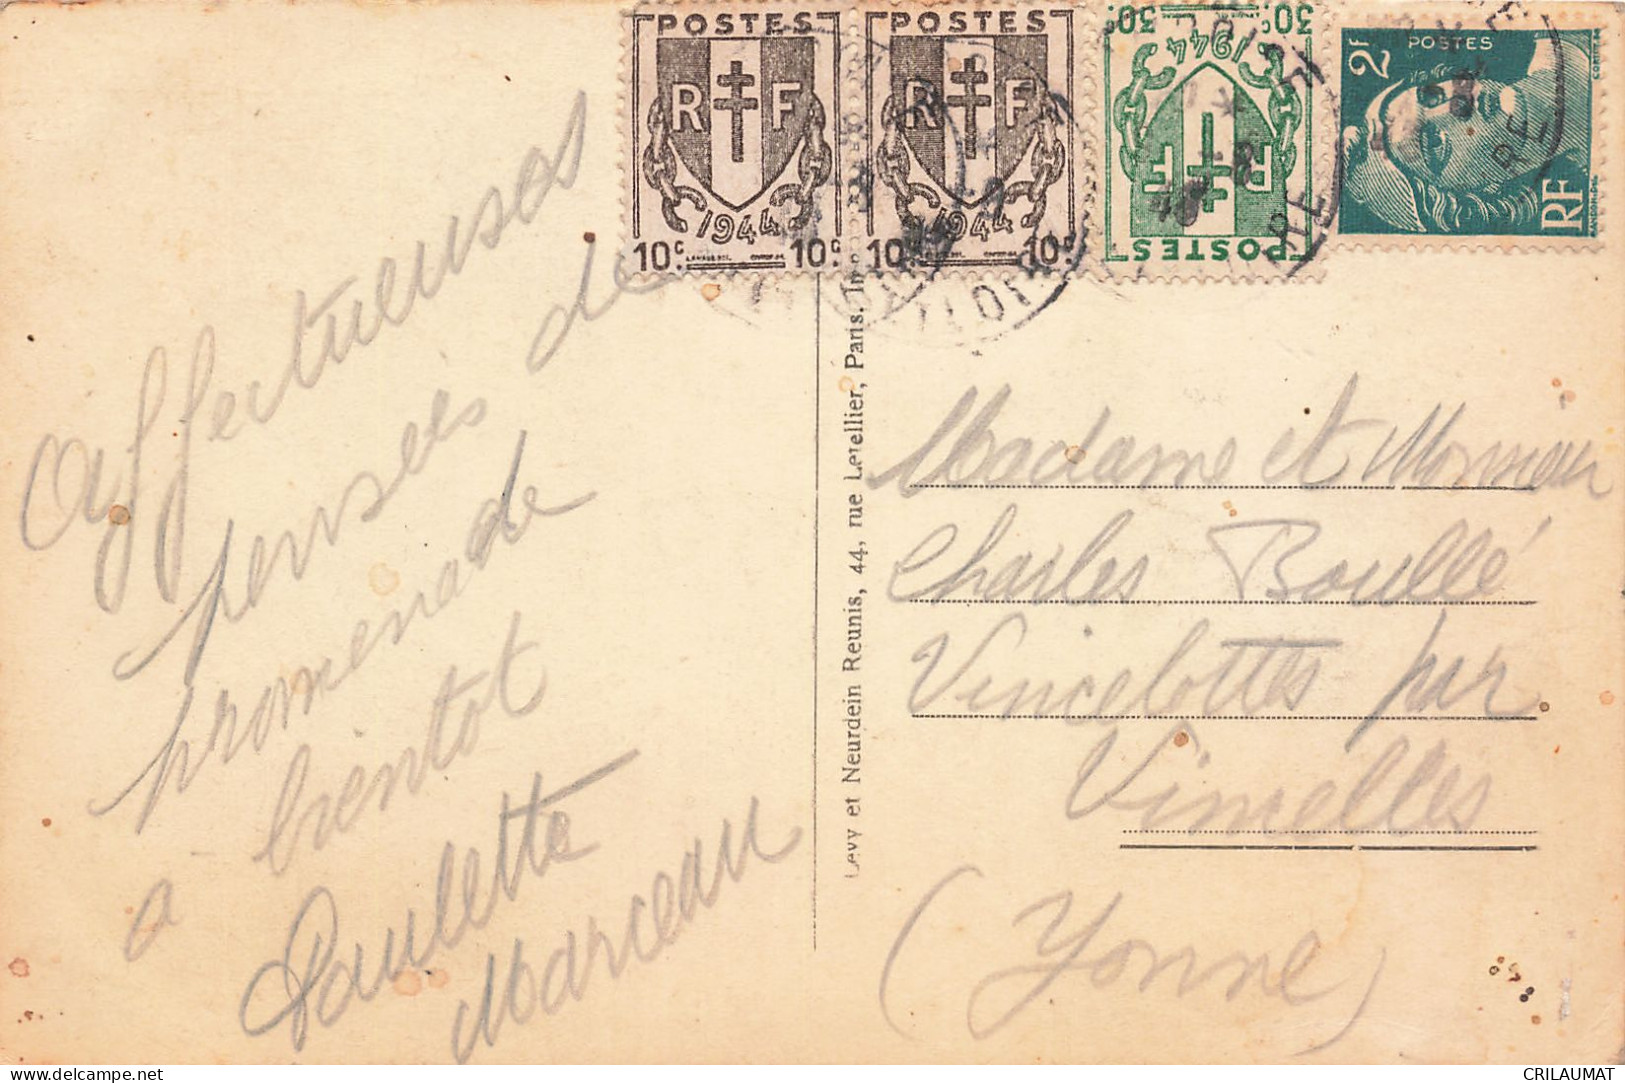 POSTES
RF
1944
10c 10c
POSTES
RF
1944
10c 10c
30c 30c
1944
RF
POSTES
2F
POSTES
RF
Affectueuses
pensées de
promenade
a bientot
Paulette
Marceau
Levy et Neurdein Reunis, 44, rue Letellier, Paris.
Madame et Monsieur
Charles Boullé
Vincelottes par
Vincelles
(Yonne)
CRILAUMAT